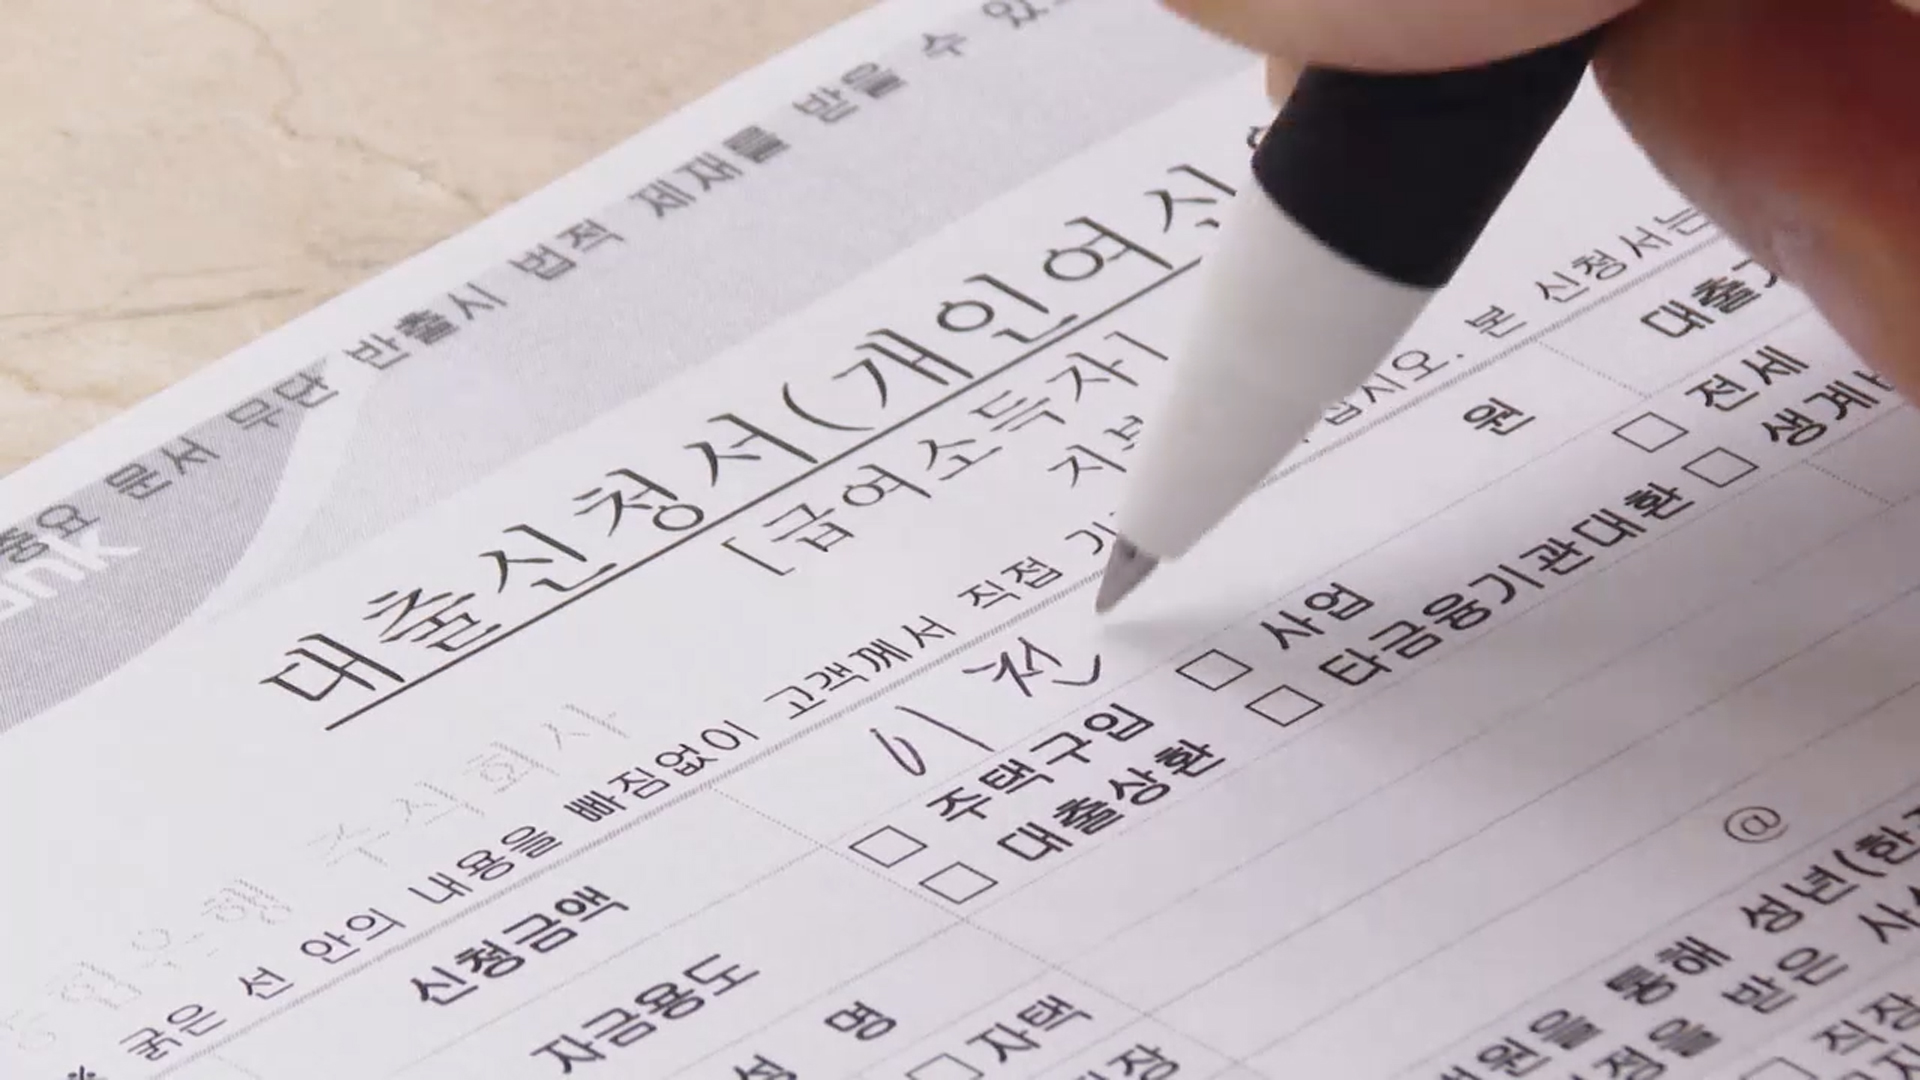 중요 문서 무단 반출시 법적 제재를 받을 수 있
ank
대출신청서(개인여신
[급여소득자]
주식회사
굵은 선 안의 내용을 빠짐없이 고객께서 직접 기 십시오. 본 신청서는
신청금액 이천 원 대출
자금용도 □ 주택구입 □ 사업 □ 전세
□ 대출상환 □ 타금융기관대환 □ 생계
성 명
□ 자택 @
직장
원을 통해 성년(한
정을 받은 사
□ 직장